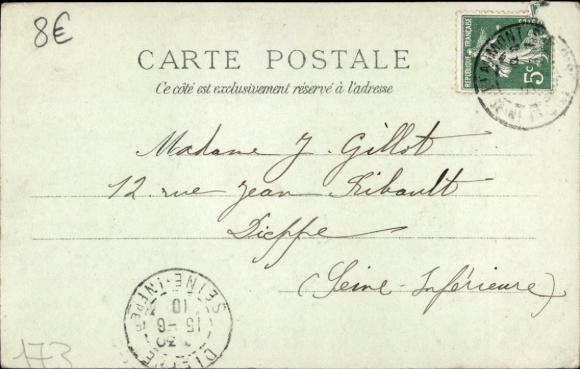 8€
CARTE POSTALE
Ce côté est exclusivement réservé à l'adresse
REPUBLIQUE FRANÇAISE
5c
Madame J. Gillot
12 rue Jean Ribault
Dieppe
(Seine-Inférieure)
SEINE-INFRE
15-6
10
173